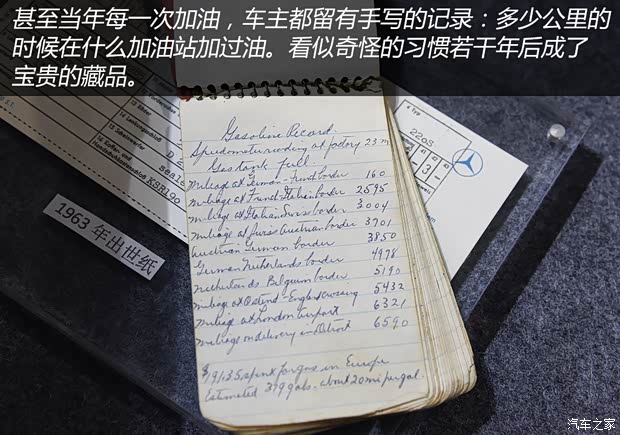 甚至当年每一次加油，车主都留有手写的记录：多少公里的
时候在什么加油站加过油。看似奇怪的习惯若干年后成了
宝贵的藏品。
Gasoline Record
Speedometer reading at factory 23 m
Gas tank full
Mileage at German-French border 160
Mileage at French Italian border 2595
Mileage at Italian Swiss border 3004
Mileage at Swiss Austrian border 3701
Austrian German border 3850
German Netherlands border 4978
Netherlands Belgium border 5190
Mileage at Ostend-England crossing 5432
Mileage at London Airport 6321
Mileage on delivery in Detroit 6590
spent for gas in Europe
Estimated 379 gals. about 20 mi per gal.
1963年出世纸
220S
3
汽车之家